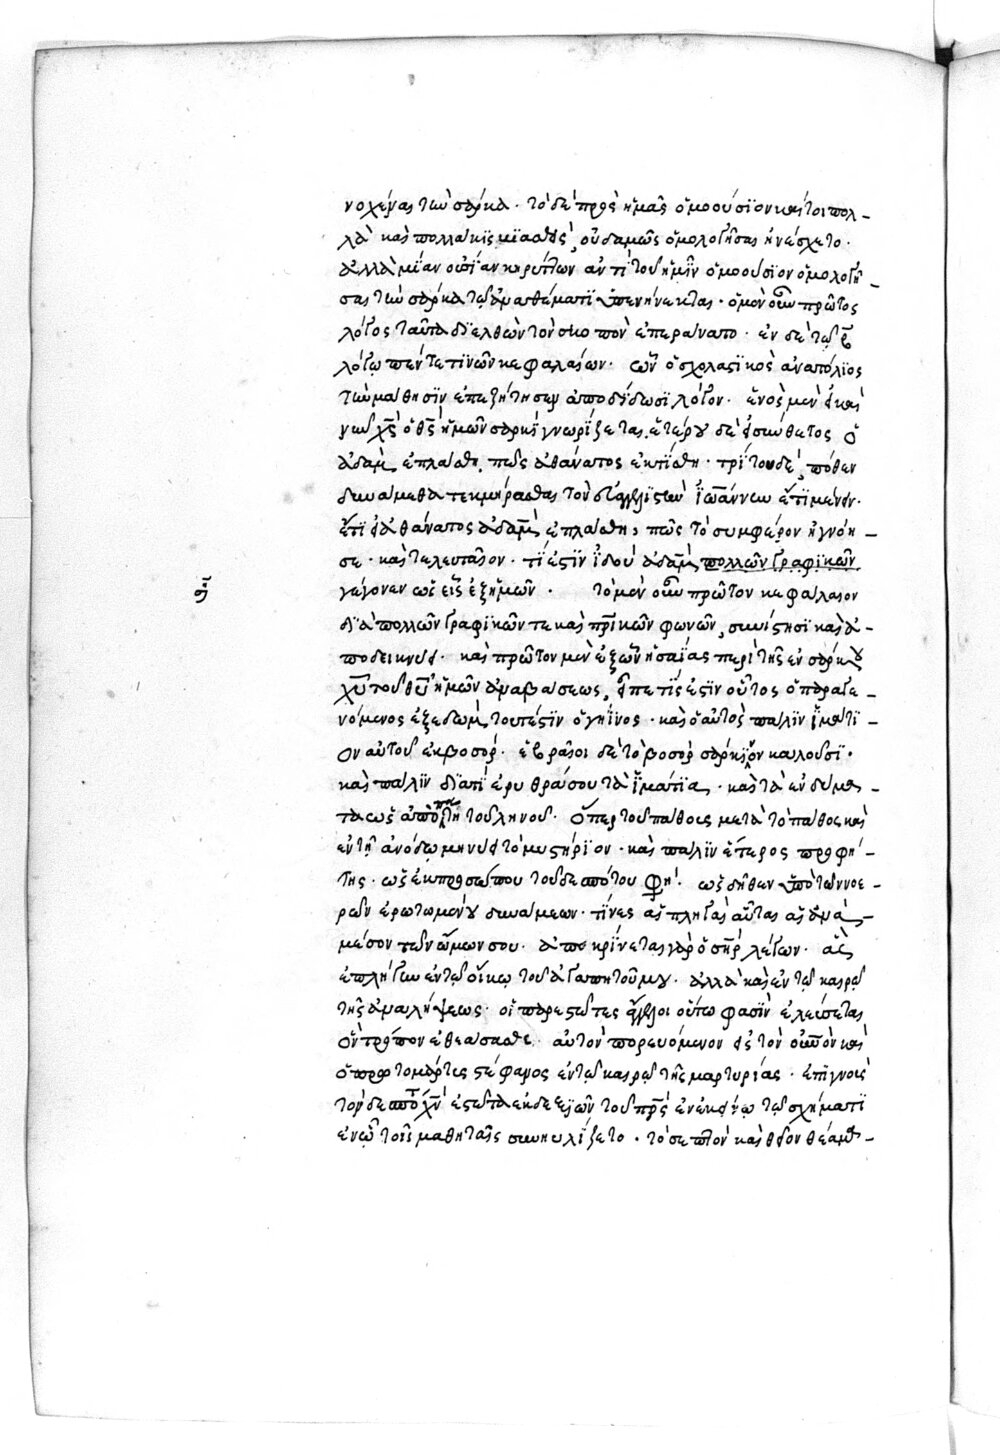 νοχένας τὴν σάρκα · τὸ δὲ πρὸς ἡμᾶς ὁμοούσϊον καίτοι πολ_
λὰ καὶ πολλακῒς μϊασθεὶς, οὐδαμῶς ὁμολογῆσαι ἠνέσχετο ·
ἀλλὰ μΐαν οὐσΐαν κηρύττων ἀντὶ τοῦ ἡμῖν ὁμοούσϊον ὁμολογῆ_
σαι τὴν σάρκα τῷ ἀναθέματϊ ὑπενήνεκται · ὁ μὲν οὖν πρῶτος
λόγος ταῦτα δϊελθὼν τὸν σκοπὸν ἐπεραίνατο · ἐν δὲ τῷ β̅
λόγῳ πέντε τϊνῶν κεφαλαίων · ὧν ὁ σχολαστϊκὸς ἀνατόλϊος
τὴν μάθησϊν ἐπεζήτησεν ἀποδίδωσϊ λόγον · ἑνὸς μὲν εἰ καὶ
νῦν χ̅ς̅ ὁ θ̅ς̅ ἡμῶν σαρκῒ γνωρΐζεται. ἑτέρου δὲ εἰ σύνθετος ὁ
ἀδὰμ ἐπλάσθη, πῶς ἀθάνατος ἐκτΐσθη · τρΐτου δὲ, πόθεν
δυνάμεθα τεκμήρασθαι τὸν εὐαγγελϊστὴν ἰωάννην ἔτϊ μένειν ·
ἔτϊ εἰ ἀθάνατος ἀδὰμ ἐπλάσθη, πῶς τὸ συμφέρον ἠγνόη_
σε · καὶ τελευταῖον · τΐ ἐστϊν ἰδοὺ ἀδὰμ πολλῶν γραφϊκῶν
γέγονεν ὡς εἷς ἐξ ἡμῶν · τὸ μὲν οὖν πρῶτον κεφάλαιον
δϊὰ πολλῶν γραφϊκῶν τε καὶ π̅ρ̅ϊκῶν φωνῶν, συνίστησϊ καὶ ἀ_
ποδείκνυσι · καὶ πρῶτον μὲν ἐξ ὧν ἡσαΐας περὶ τῆς ἐν σαρκὶ
χ̅υ̅ τοῦ θ̅υ̅ ἡμῶν ἀναβάσεως, εἶπε τΐς ἐστϊν οὗτος ὁ παραγε_
νόμενος ἐξ ἐδώμ τουτέστϊν ὁ γήϊνος · καὶ ὁ αὐτὸς πάλϊν ἱμάτϊ_
ον αὐτοῦ ἐκ βοσόρ · ἑβραῖοι δὲ τὸ βοσὸρ σάρκϊνον καλοῦσϊ ·
καὶ πάλϊν δϊατΐ ἐρυθρά σου τὰ ἱμάτϊα · καὶ τὰ ἐνδύμα_
τα ὡς ἀπὸ πατητοῦ ληνοῦ · ὅπερ τοῦ πάθους μετὰ τὸ πάθος καὶ
ἐν τῇ ἀνόδῳ μηνύει τὸ μυστήρϊον · καὶ πάλϊν ἕτερος προφή_
της · ὡς ἐκ προσώπου τοῦ δεσπότου φησί · ὡς δῆθεν ὑπὸ τῶν νοε_
ρῶν ἐρωτωμένου δυνάμεων · τΐνες αἱ πληγαὶ αὗται αἱ ἀνὰ_
μέσον τῶν ὤμων σου · ἀποκρΐνεται γὰρ ὁ σ̅η̅ρ̅ λέγων · ἃς
ἐπλήγην ἐν τῷ οἴκῳ τοῦ ἀγαπητοῦ μου · ἀλλὰ καὶ ἐν τῷ καιρῷ
τῆς ἀναλήψεως · οἱ παρεστῶτες ἄγγελοι οὕτω φασὶν ἐλεύσεται
ὃν τρόπον ἐθεάσασθε · αὐτὸν πορευόμενον εἰς τὸν οὐ̅ν̅ο̅ν καὶ
ὁ πρωτομάρτυς στέφανος ἐν τῷ καιρῷ τῆς μαρτυρίας · ἐπϊγνοὺς
τὸν δεσπότην χ̅ν̅ ἑστῶτα ἐκ δεξϊῶν τοῦ π̅ρ̅ς̅ ἐν ἐκείνῳ τῷ σχήματϊ
ἐν ᾧ τοῖς μαθηταῖς συνηυλΐζετο · τὸ σεπτὸν καὶ θεῖον θέαμα_